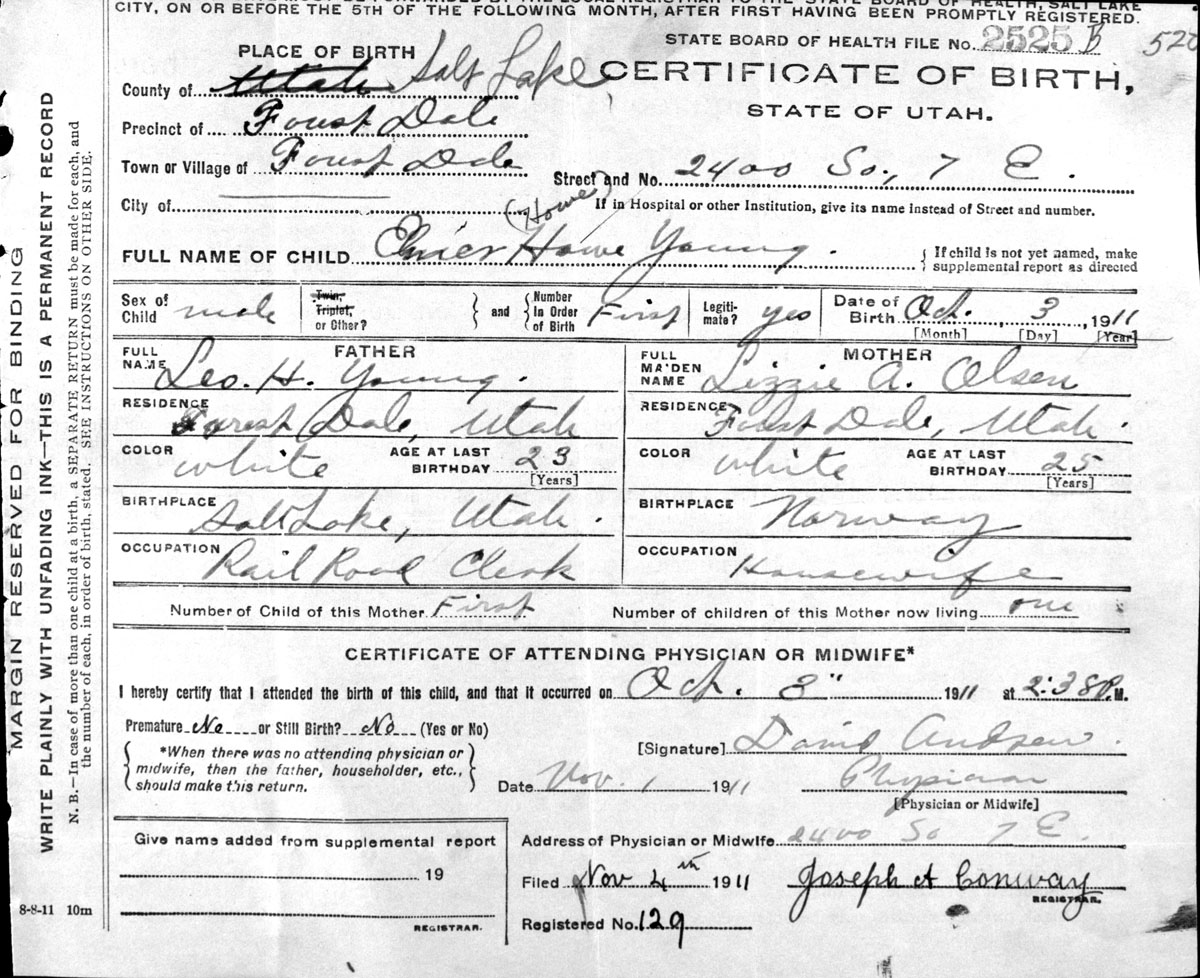 CITY, ON OR BEFORE THE 5TH OF THE FOLLOWING MONTH, AFTER FIRST HAVING BEEN PROMPTLY REGISTERED.
STATE BOARD OF HEALTH FILE No. 2525 B
PLACE OF BIRTH
CERTIFICATE OF BIRTH,
STATE OF UTAH.
County of Utah Salt Lake
Precinct of Forest Dale
Town or Village of Forest Dale
Street and No. 2400 So., 7 E.
City of
(Howe)
If in Hospital or other Institution, give its name instead of Street and number.
FULL NAME OF CHILD Elmer Howe Young.
{ If child is not yet named, make supplemental report as directed
Sex of Child male
Twin, Triplet, or Other? } and { Number In Order of Birth First
Legitimate? yes
Date of Birth Oct. 3, 1911
[Month] [Day] [Year]
FATHER
FULL NAME Leo. H. Young.
RESIDENCE Forest Dale, Utah
COLOR white AGE AT LAST BIRTHDAY 23 [Years]
BIRTHPLACE Salt Lake, Utah.
OCCUPATION Rail Road Clerk
MOTHER
FULL MAIDEN NAME Lizzie A. Olsen
RESIDENCE Forest Dale, Utah.
COLOR white AGE AT LAST BIRTHDAY 25 [Years]
BIRTHPLACE Norway
OCCUPATION Housewife
Number of Child of this Mother First Number of children of this Mother now living one
CERTIFICATE OF ATTENDING PHYSICIAN OR MIDWIFE*
I hereby certify that I attended the birth of this child, and that it occurred on Oct. 3" 1911 at 2:38 P.M.
Premature No or Still Birth? No (Yes or No)
{ *When there was no attending physician or midwife, then the father, householder, etc., should make this return. }
[Signature] David Andrew.
Date Nov. 1 1911 Physician
[Physician or Midwife]
Give name added from supplemental report
19
REGISTRAR.
Address of Physician or Midwife 2400 So 7 E.
Filed Nov 4th 1911 Joseph A Conway
REGISTRAR.
Registered No. 129
8-8-11 10m
MARGIN RESERVED FOR BINDING
WRITE PLAINLY WITH UNFADING INK—THIS IS A PERMANENT RECORD
N. B.—In case of more than one child at a birth, a SEPARATE RETURN must be made for each, and
the number of each, in order of birth, stated. SEE INSTRUCTIONS ON OTHER SIDE.